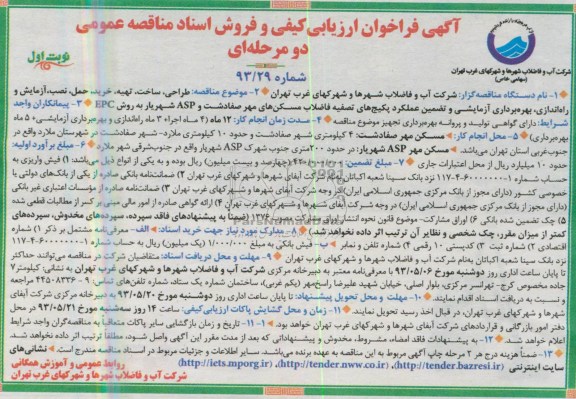 آگهی فراخوان ارزیابی کیفی و فروش اسناد مناقصه عمومی
دو مرحله‌ای
نوبت اول
شماره ۹۳/۲۹
شرکت آب و فاضلاب شهرها و شهرکهای غرب تهران
(سهامی خاص)
۱- نام دستگاه مناقصه‌گزار: شرکت آب و فاضلاب شهرها و شهرکهای غرب تهران ۲- موضوع مناقصه: طراحی، ساخت، تهیه، خرید، حمل، نصب، آزمایش و
راه‌اندازی، بهره‌برداری آزمایشی و تضمین عملکرد پکیج‌های تصفیه فاضلاب مسکن‌های مهر صفادشت و ASP شهریار به روش EPC ۳- پیمانکاران واجد
شرایط: دارای گواهی تولید و پروانه بهره‌برداری تجهیز موضوع مناقصه ۴- مدت زمان انجام کار: ۱۲ ماه (۴ ماه اجرا، ۳ ماه راه‌اندازی و بهره‌برداری آزمایشی، ۵ ماه
بهره‌برداری) ۵- محل انجام کار: مسکن مهر صفادشت: ۴ کیلومتری شهر صفادشت و حدود ۱۰ کیلومتری ملارد- شهر صفادشت در شهرستان ملارد واقع در
جنوب‌غربی استان تهران می‌باشد. مسکن مهر ASP شهریار: در حدود ۲۰۰ متری جنوب شهرک ASP شهریار واقع در جنوب‌شرقی شهر ملارد ۶- مبلغ برآورد اولیه:
حدود ۱۰ میلیارد ریال از محل اعتبارات جاری ۷- مبلغ تضمین (چهارصد و بیست میلیون) ریال بوده و به یکی از انواع ذیل می‌باشد: ۱) فیش واریزی به
حساب شماره نزد بانک سینا شعبه اکباتان ۲) ضمانتنامه بانکی صادره از یکی از بانک‌های دولتی یا
خصوصی کشور (دارای مجوز از بانک مرکزی جمهوری اسلامی ایران) در وجه شرکت آبفای شهرها و شهرکهای غرب تهران ۳) ضمانتنامه صادره از مؤسسات اعتباری غیر بانکی
(دارای مجوز از بانک مرکزی جمهوری اسلامی ایران) در وجه شرکت آبفای شهرها و شهرکهای غرب تهران ۴) ارائه گواهی صادره از امور مالی مبنی بر کسر از مطالبات قطعی شده
۵) چک تضمین شده بانکی ۶) اوراق مشارکت- موضوع قانون نحوه انتشار اوراق مشارکت مصوب ۱۳۷۶ (ضمناً به پیشنهادهای فاقد سپرده، سپرده‌های مخدوش، سپرده‌های
کمتر از میزان مقرر، چک شخصی و نظایر آن ترتیب اثر داده نخواهد شد.) ۸- مدارک مورد نیاز جهت خرید اسناد: الف- معرفی‌نامه مشتمل بر ذکر ۱) شماره
اقتصادی ۲) شماره ثبت ۳) کدپستی ۱۰ رقمی ۴) شماره تلفن و نمابر ب- فیش بانکی به مبلغ ۱/۰۰۰/۰۰۰ (یک میلیون) ریال به حساب شماره
نزد بانک سینا شعبه اکباتان به‌نام شرکت آب و فاضلاب شهرها و شهرکهای غرب تهران ۹- مهلت و محل دریافت اسناد: متقاضیان شرکت در مناقصه می‌توانند حداکثر
تا پایان ساعت اداری روز دوشنبه مورخ ۹۳/۰۵/۰۶ با معرفی‌نامه معتبر به دبیرخانه مرکزی شرکت آب و فاضلاب شهرها و شهرکهای غرب تهران به نشانی: کیلومتر ۷
جاده مخصوص کرج- تهرانسر مرکزی، بلوار اصلی، خیابان شهید علیرضا راسخ‌مهر (یکم غربی)، ساختمان شماره یک ستاد، شماره تلفن‌های تماس ۹-۴۴۵۰۸۳۳۶ مراجعه
و نسبت به دریافت اسناد اقدام نمایند. ۱۰- مهلت و محل تحویل پیشنهاد: تا پایان ساعت اداری روز دوشنبه مورخ ۹۳/۰۵/۲۰ به دبیرخانه مرکزی شرکت آبفای
شهرها و شهرکهای غرب تهران، در قبال اخذ رسید تحویل نمایند. ۱۱- زمان و محل گشایش پاکات ارزیابی کیفی: ساعت ۱۴ روز سه‌شنبه مورخ ۹۳/۰۵/۲۱ در محل
دفتر امور بازرگانی و قراردادهای شرکت آبفای شهرها و شهرکهای غرب تهران خواهد بود. ۱-۱۱- تاریخ و زمان بازگشایی سایر پاکات متعاقباً به مناقصه‌گران واجد شرایط
اعلام خواهد شد. ۱۲- به پیشنهادات فاقد امضاء، مشروط، مخدوش و پیشنهاداتی که بعد از مدت مقرر این آگهی واصل شود، مطلقاً ترتیب اثر داده نخواهد شد.
۱۳- ضمناً هزینه درج هر ۲ مرحله چاپ آگهی مربوط به این مناقصه به عهده برنده می‌باشد. سایر اطلاعات و جزئیات مربوط در اسناد مناقصه مندرج است. نشانی‌های
سایت اینترنتی (http://tender.bazresi.ir)، (http://tender.nww.co.ir)، (http://iets.mporg.ir)
روابط عمومی و آموزش همگانی
شرکت آب و فاضلاب شهرها و شهرکهای غرب تهران